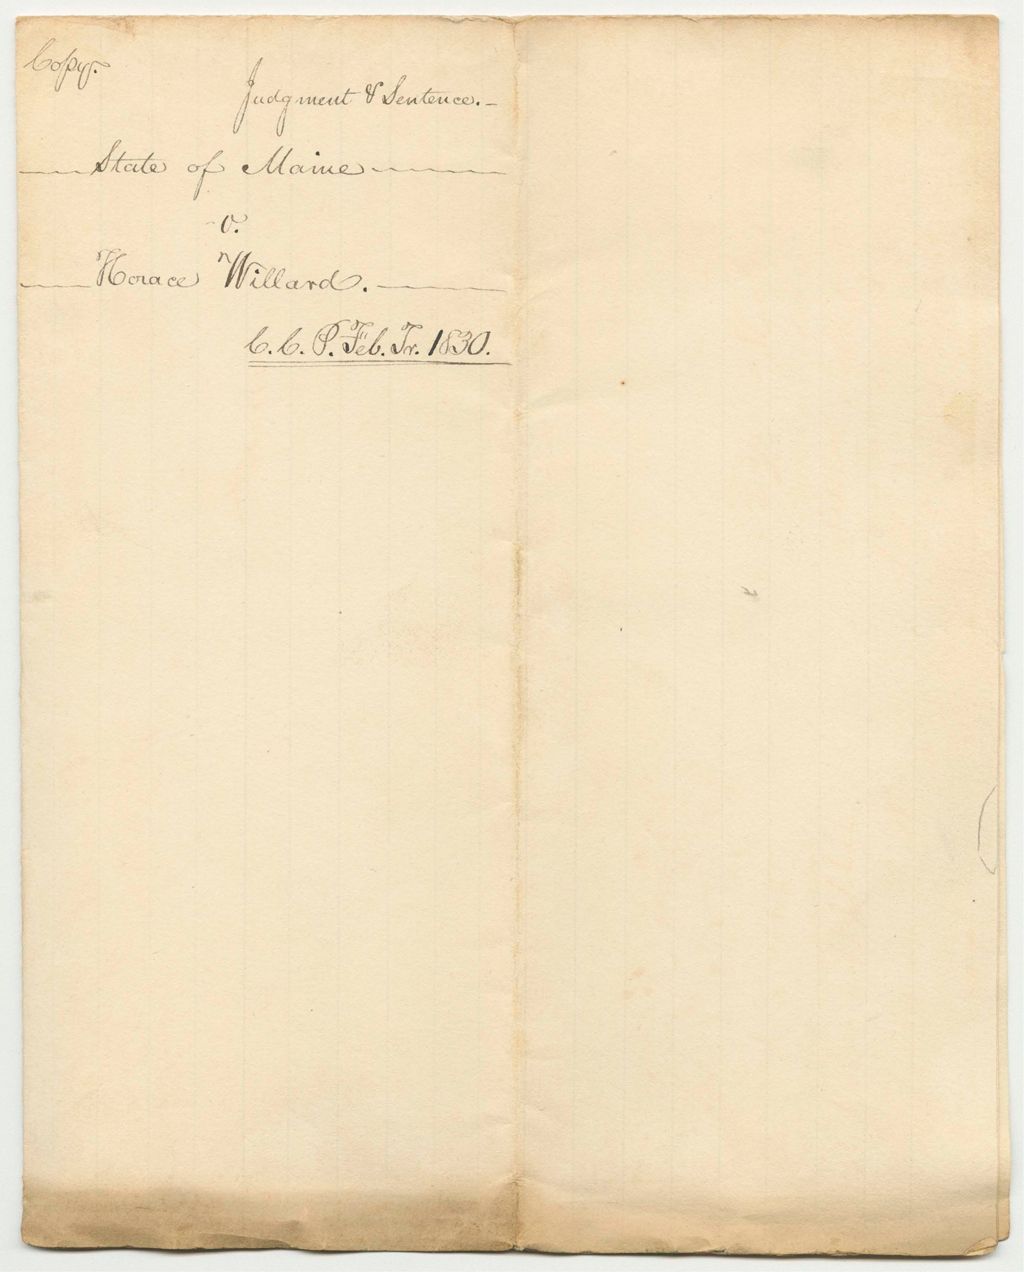 Copy.
Judgment & Sentence. -
State of Maine
v.
Horace Willard.
C. C. P. Feb. Tr. 1830.